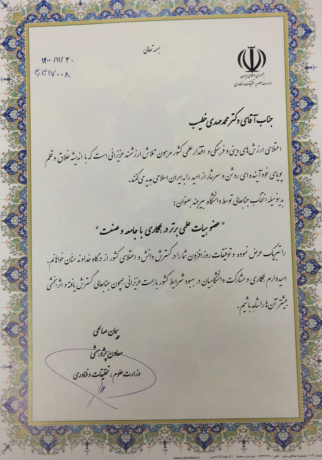 بسمه تعالی
جمهوری اسلامی ایران
وزارت علوم، تحقیقات و فناوری
۱۴۰۰/۱۱/۲۰
۳۱۷۰۰۸
جناب آقای دکتر محمد مهدی خطیب
اعتلای ارزش‌های دینی و فرهنگی و اقتدار علمی کشور مرهون تلاش ارزشمند عزیزانی است که با اندیشه خلاق و قلم
پویای خود آینده ای روشن و سرشار از امید را به ایران اسلامی هدیه می کنند.
بدینوسیله انتخاب جنابعالی توسط دانشگاه بیرجند بعنوان:
"عضو هیات علمی برتر در همکاری با جامعه و صنعت"
را تبریک عرض نموده و توفیقات روزافزون شما را در گسترش دانش و اعتلای کشور از درگاه خداوند منان خواهانم.
امیدوارم همکاری و مشارکت دانشگاهیان در بهبود شرایط کشور با همت عزیزانی همچون جنابعالی گسترش یافته و اثربخشی
بیشتر آن‌ها را شاهد باشیم.
پیمان صالحی
معاون پژوهشی
وزارت علوم، تحقیقات و فناوری